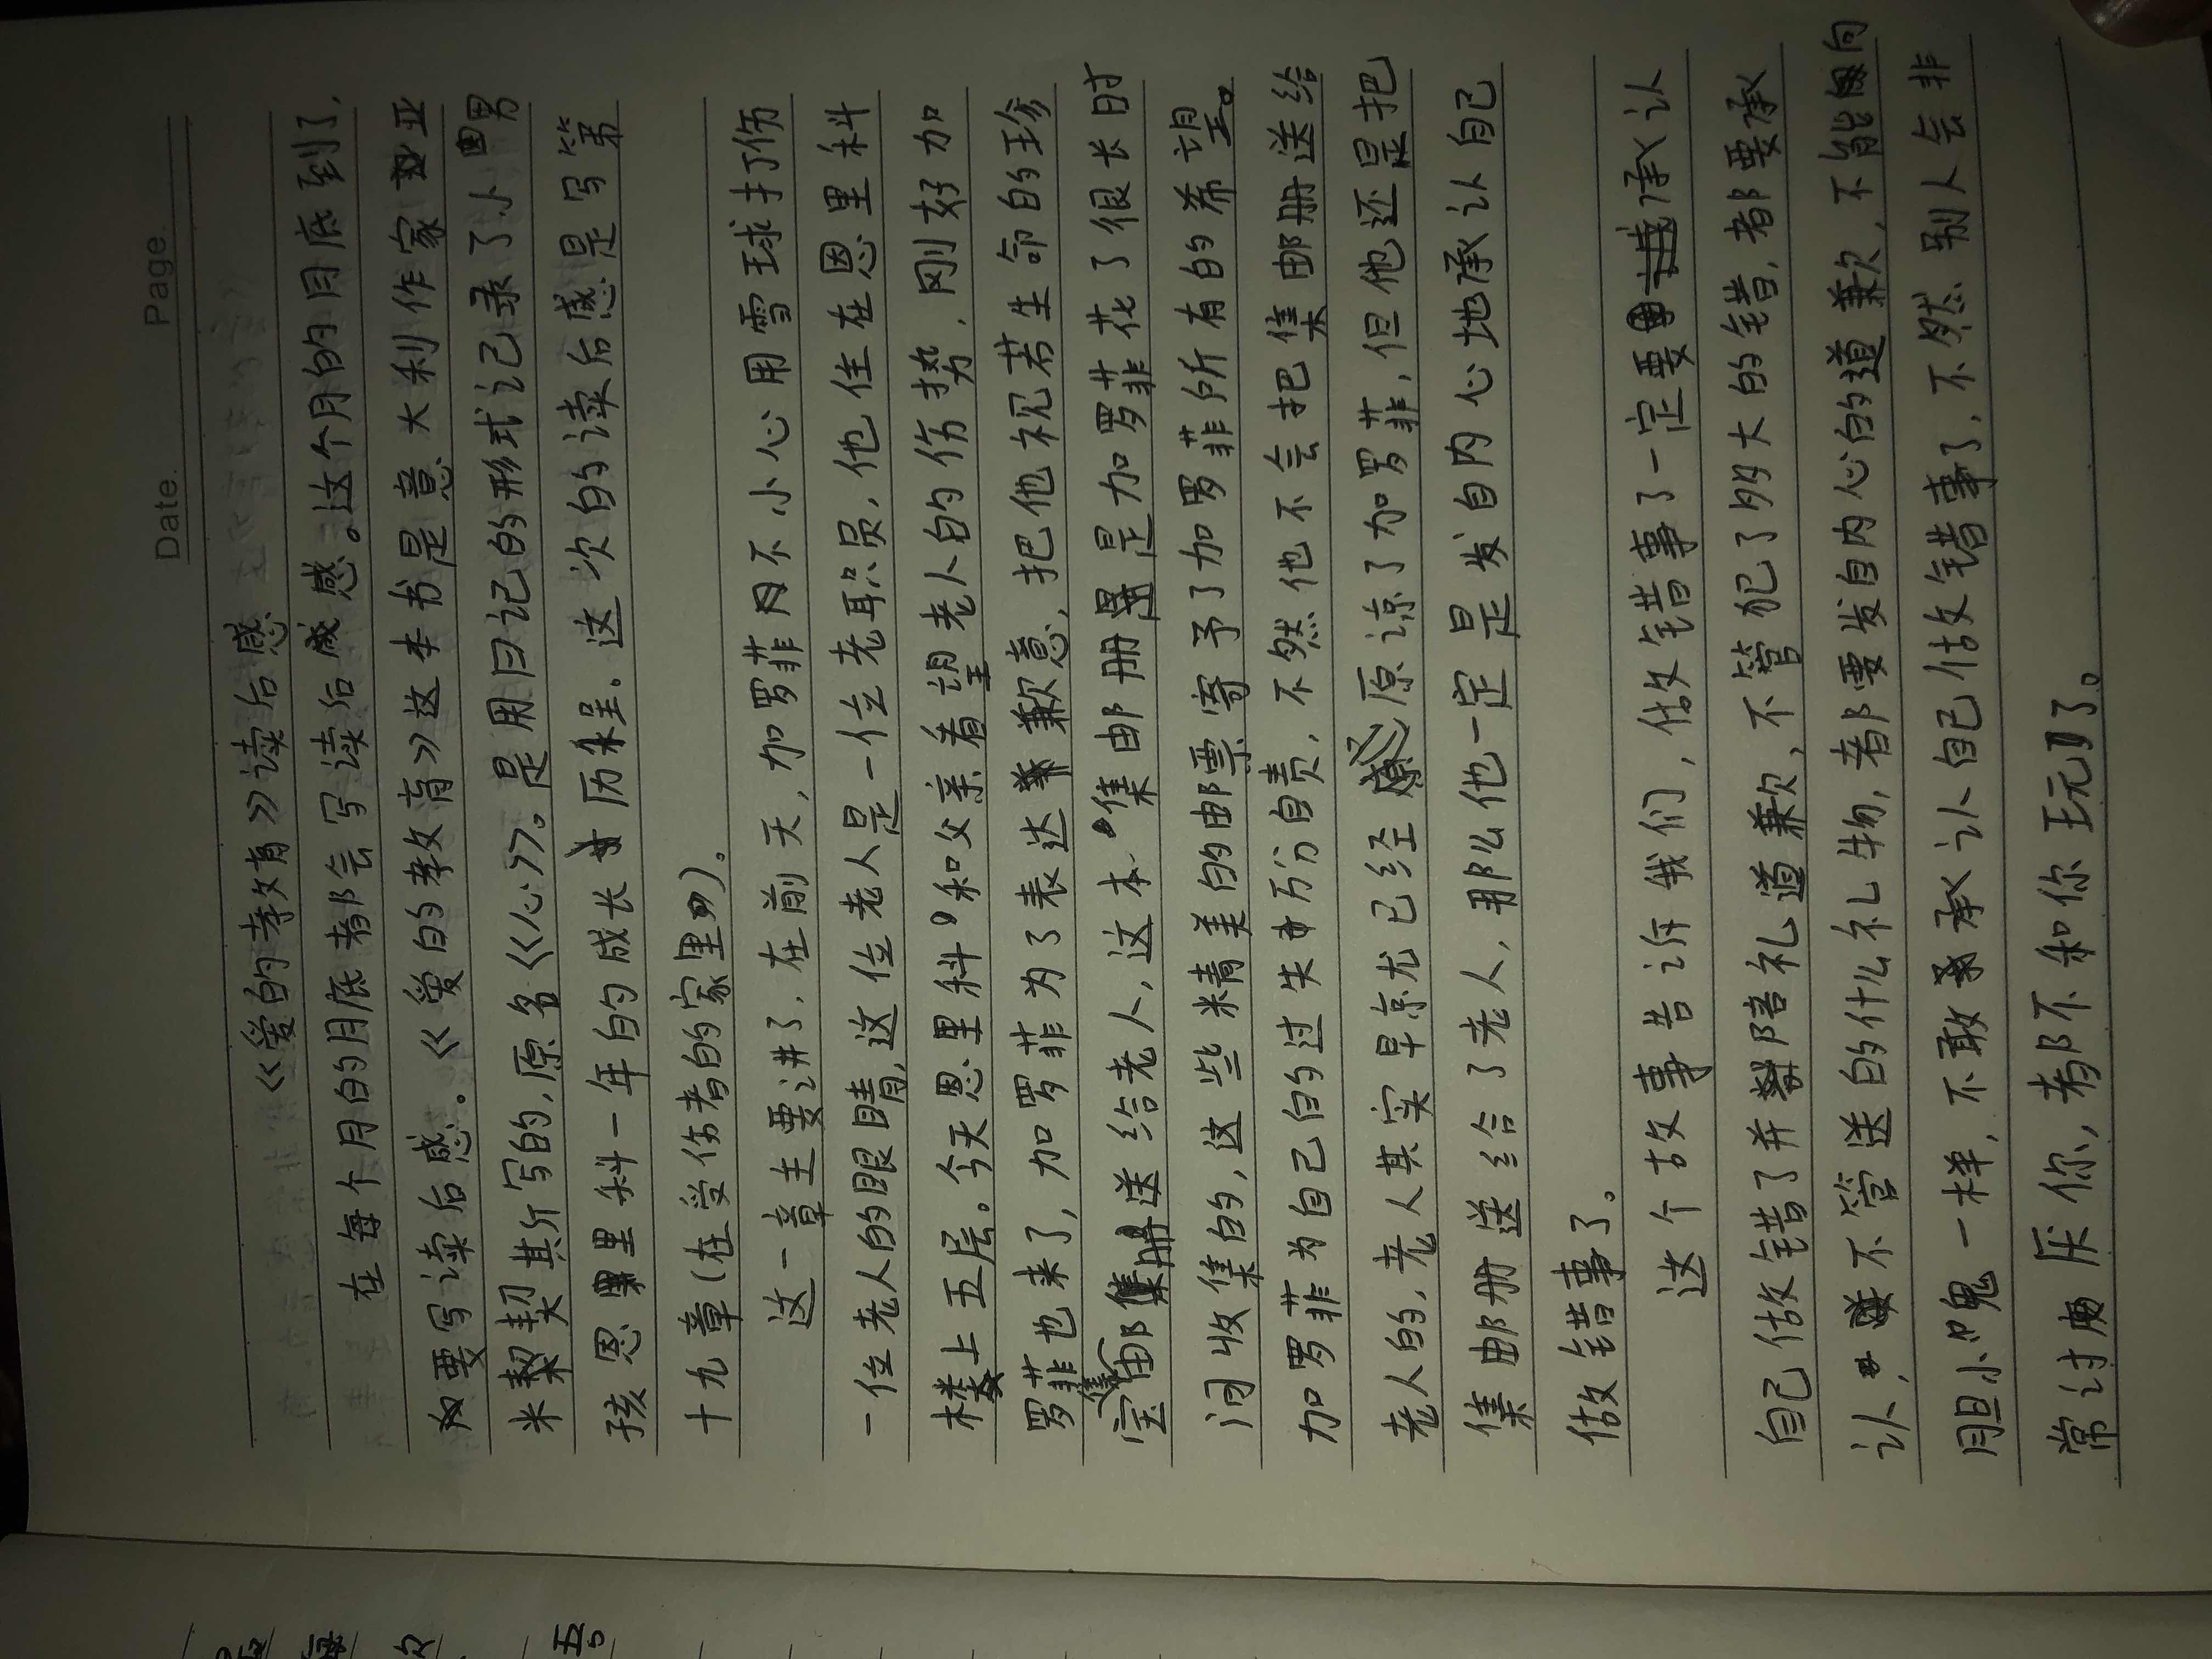 Date. Page.
《爱的教育》读后感
在每个月的月底都会写读后感。这个月的月底到了,
要写读后感.《爱的教育》这本书是意大利作家亚
米契斯写的,原名《心》。是用日记的形式记录了小男
孩恩里科一年的成长历程。这次的读后感是写第
十九章(在受伤者的家里)。
这一章主要讲了,在前天,加罗菲不小心用雪球打伤
一位老人的眼睛,这位老人是一位老职员,他住在恩里科
楼上五层。今天恩里科和父亲看望老人的伤势,刚好加
罗菲也来了,加罗菲为了表达歉意,把他视若生命的珍
宝集邮册送给老人,这本集邮册是加罗菲花了很长时
间收集的,这些精美的邮票寄予了加罗菲所有的希望。
加罗菲为自己的过失万分自责,不然他不会把集邮册送给
老人的,老人其实早就已经原谅了加罗菲,但他还是把
集邮册送给了老人,那么他一定是发自内心地承认自己
做错事了。
这个故事告诉我们,做错事了一定要承认
自己做错了并赔礼道歉,不管犯了多大的错,都要承
认,不管送的什么礼物,都要发自内心的道歉,不能向
胆小鬼一样,不敢承认自己做错事了,不然别人会非
常讨厌你,都不和你玩了。